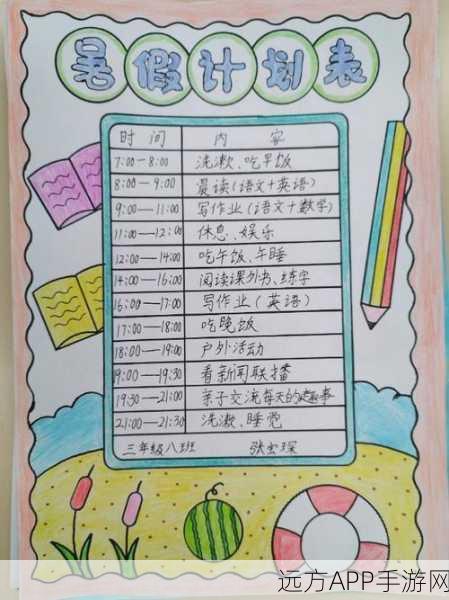 暑假计划表
时间 内容
7:00-8:00 洗漱、吃早饭
8:00-9:00 晨读(语文+英语)
9:00-11:00 写作业(语文+数学)
11:00-12:00 休息、娱乐
12:00-14:00 吃午饭、午睡
14:00-16:00 阅读课外书、练字
16:00-17:00 写作业(英语)
17:00-18:00 吃晚饭
18:00-19:00 户外活动
19:00-19:30 看新闻联播
19:30-21:00 亲子交流每天的趣事
21:00-21:30 洗漱、睡觉
三年级八班 张 琛
远方APP手游网